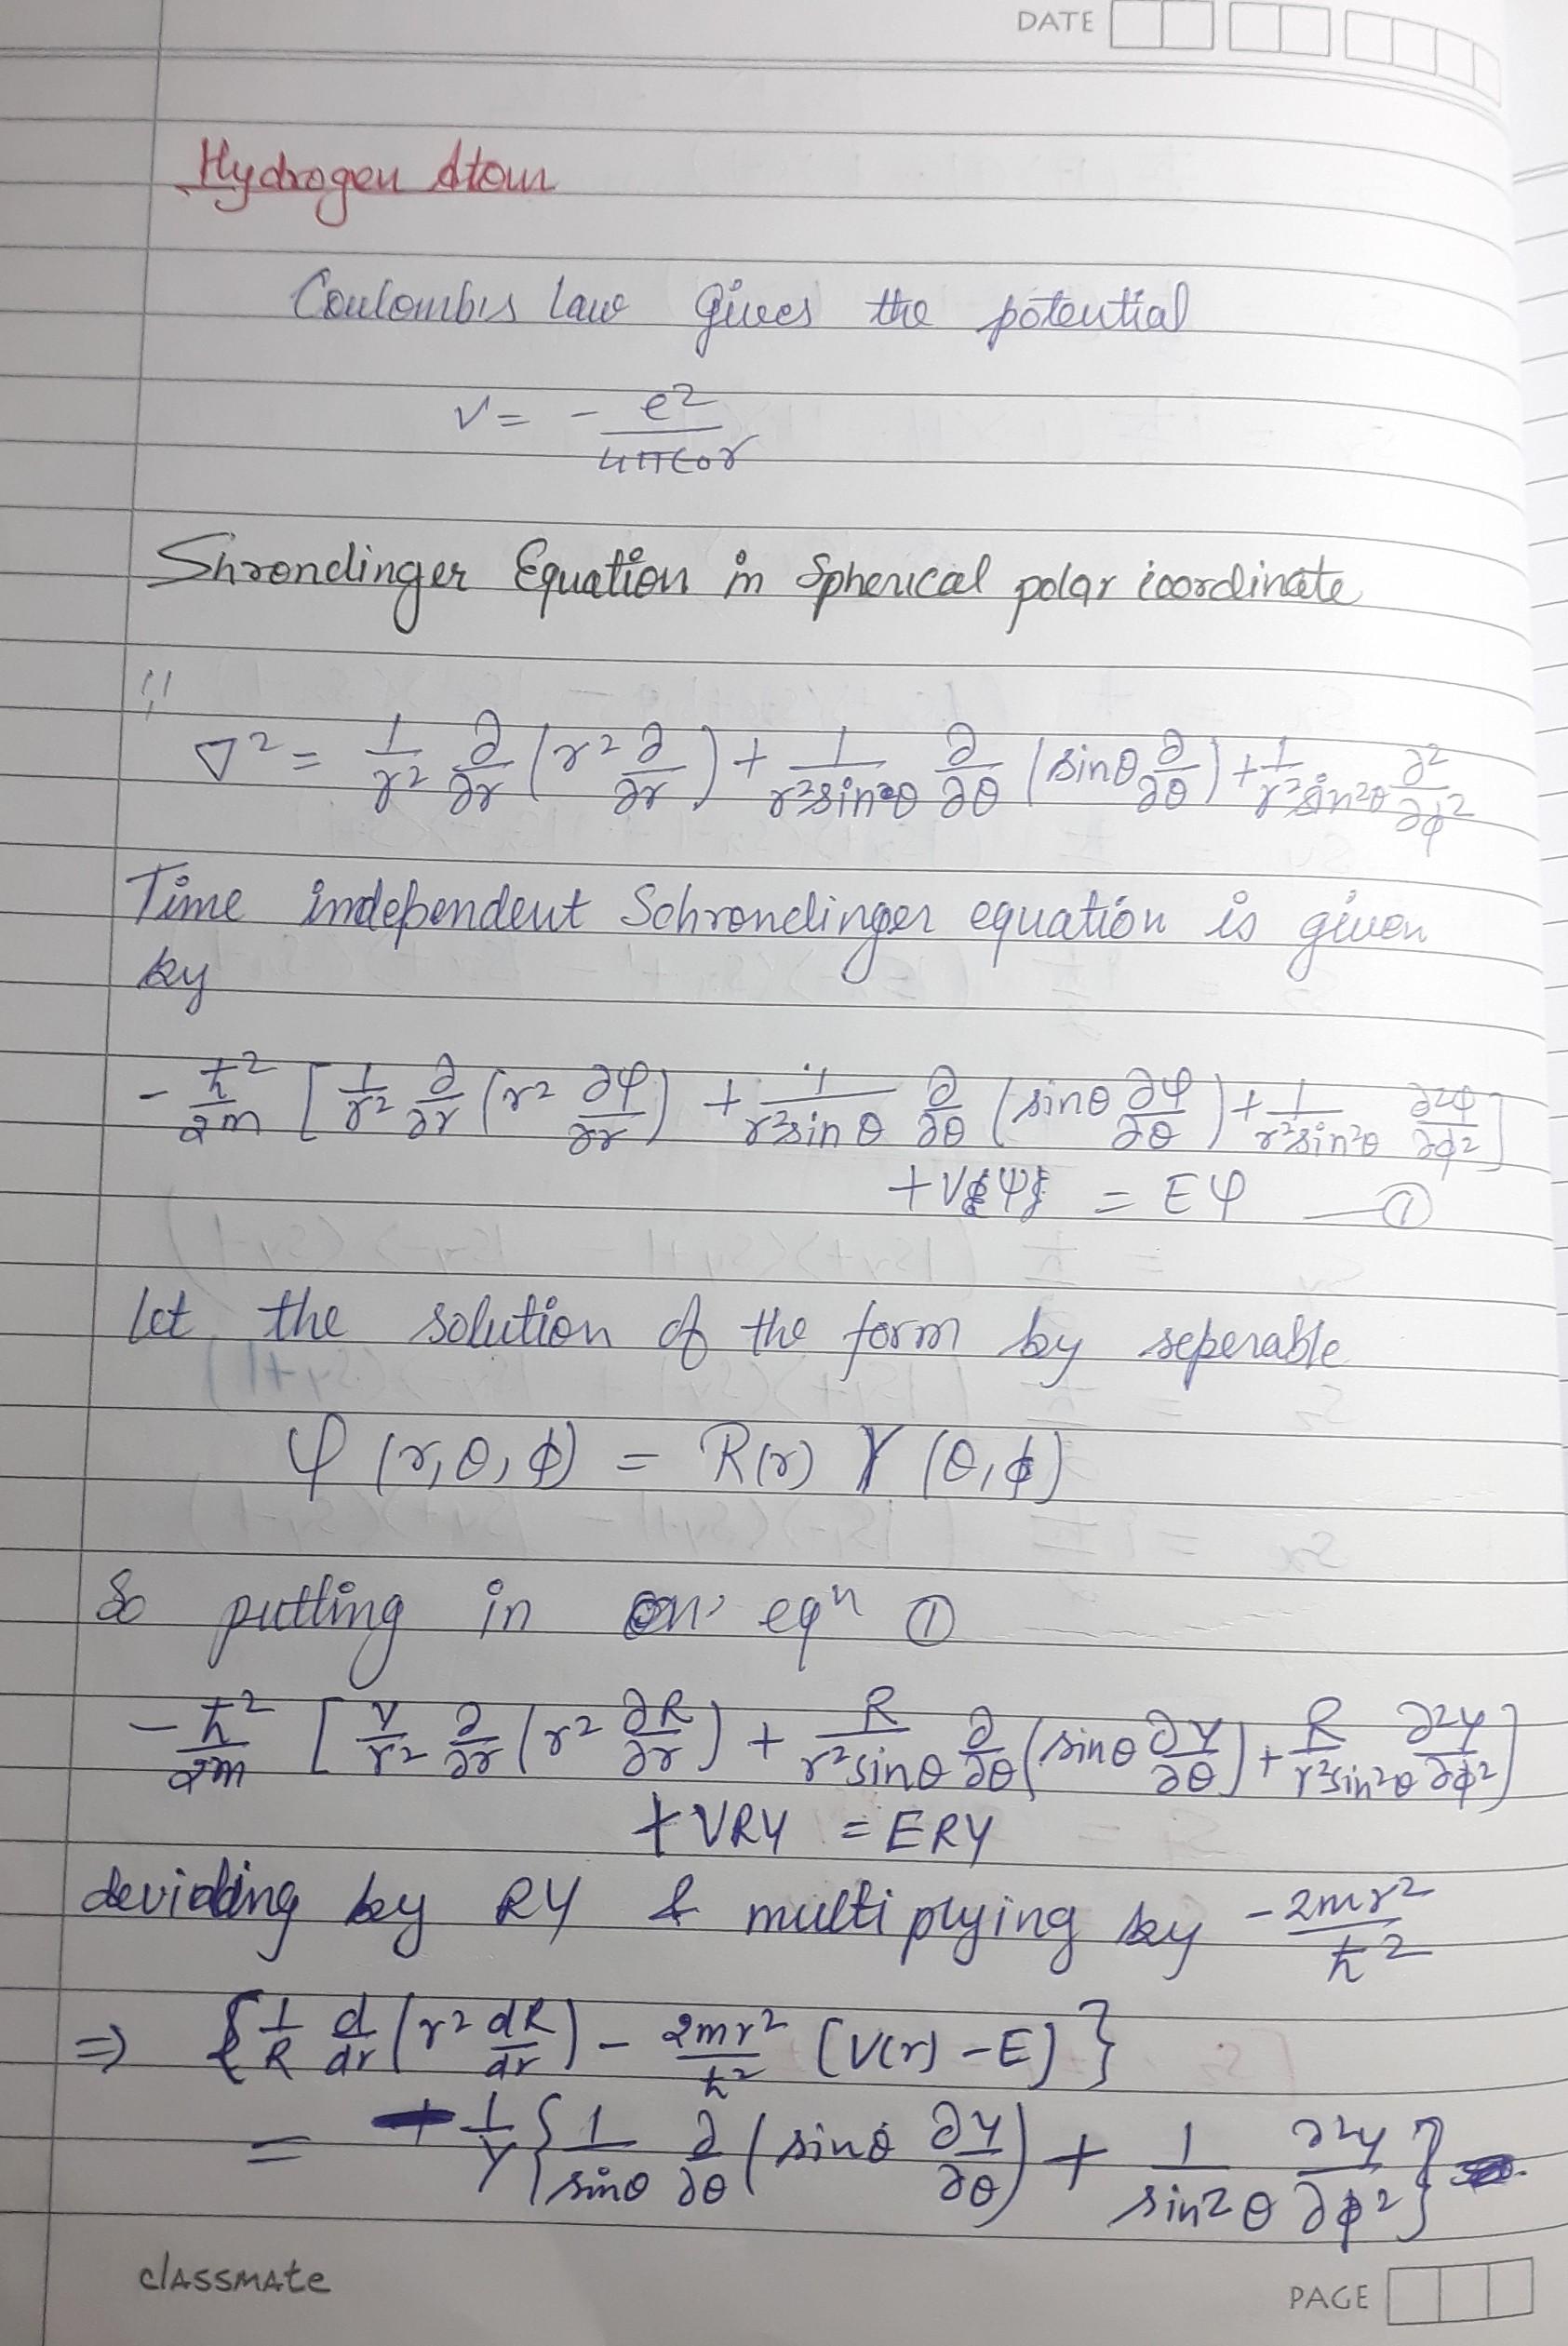 DATE
Hydrogen Atom
Coulombis law gives the potential
V = - e²/4π∈₀r
Shrondinger Equation in Spherical polar coordinate
∇² = 1/r² ∂/∂r (r² ∂/∂r) + 1/r²sin²θ ∂/∂θ (sinθ ∂/∂θ) + 1/r²sin²θ ∂²/∂ϕ²
Time independent Schrondinger equation is given
by
- ℏ²/2m [ 1/r² ∂/∂r (r² ∂φ/∂r) + 1/r²sinθ ∂/∂θ (sinθ ∂φ/∂θ) + 1/r²sin²θ ∂²φ/∂ϕ² ]
+ V{ψ} = Eφ — ①
Let the solution of the form by seperable
φ (r, θ, ϕ) = R(r) Y (θ, ϕ)
So putting in eqⁿ ①
- ℏ²/2m [ Y/r² ∂/∂r (r² ∂R/∂r) + R/r²sinθ ∂/∂θ (sinθ ∂Y/∂θ) + R/r²sin²θ ∂²Y/∂ϕ² ]
+ VRY = ERY
deviding by RY & multiplying by - 2mr²/ℏ²
⇒ { 1/R d/dr (r² dR/dr) - 2mr²/ℏ² [V(r) - E] }
= + 1/Y { 1/sinθ ∂/∂θ (sinθ ∂Y/∂θ) + 1/sin²θ ∂²Y/∂ϕ² }
classmate
PAGE